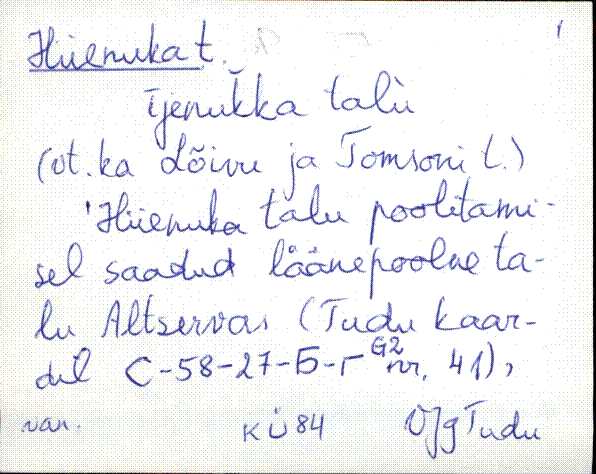 Hiienuka t.
1
ījenuk̆ka talù
(vt. ka Lõivu ja Tomsoni t.)
'Hiienuka talu poolitami-
sel saadud läänepoolne ta-
lu Altservas (Tudu kaar-
dil C-58-27-Б-г G2 nr. 41),
van. KÜ 84 VJg Tudu